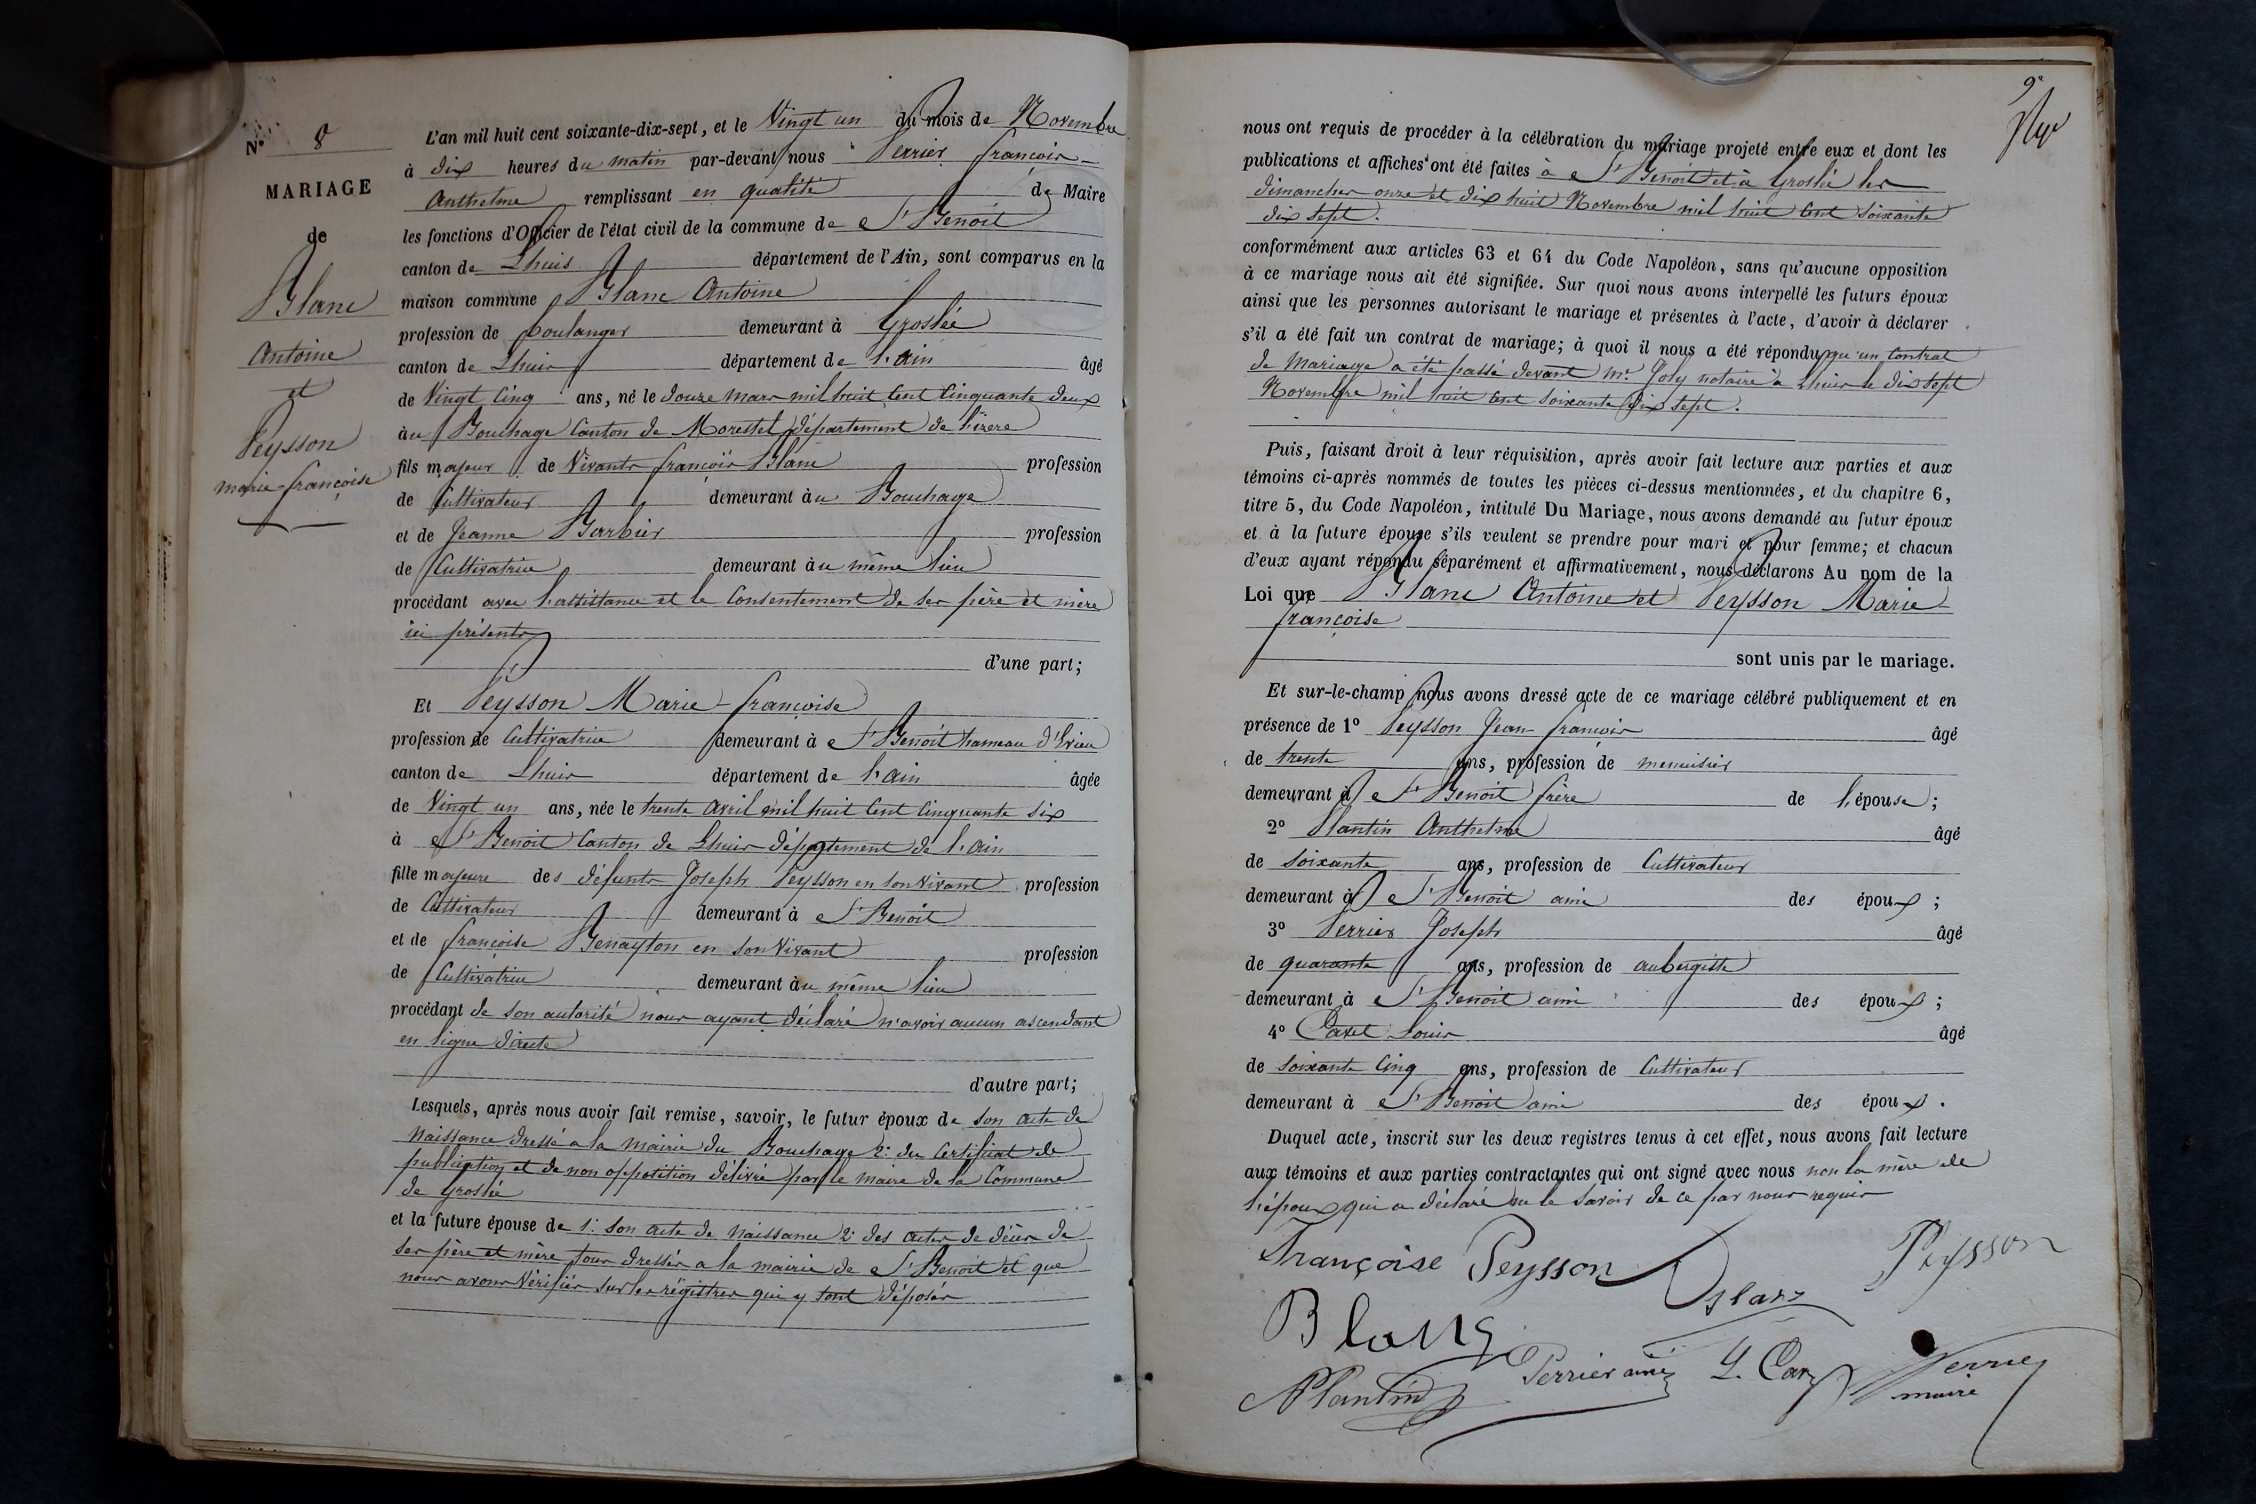 N° 8
MARIAGE
de
Blanc
Antoine
et
Peysson
marie-françoise
L'an mil huit cent soixante-dix-sept, et le Vingt un du mois de Novembre
à dix heures du matin par-devant nous Perrier françois
Anthelme remplissant en qualité de Maire
les fonctions d'Officier de l'état civil de la commune de St Benoit
canton de Lhuis département de l'Ain, sont comparus en la
maison commune Blanc Antoine
profession de boulanger demeurant à Groslée
canton de Lhuis département de l'ain âgé
de Vingt Cinq ans, né le douze mars mil huit Cent Cinquante deux
au Bouchage Canton de Morestel département de l'izere
fils majeur de Vivants françois Blanc profession
de Cultivateur demeurant au Bouchage
et de Jeanne Barbier profession
de Cultivatrice demeurant au même lieu
procédant avec l'assistance et le Consentement de ses père et mère
ici présents
d'une part;
Et Peysson Marie-françoise
profession de Cultivatrice demeurant à St Benoit hameau d'Evieu
canton de Lhuis département de l'ain âgée
de Vingt un ans, née le trente avril mil huit Cent Cinquante six
à St Benoit Canton de Lhuis département de l'ain
fille majeure des défunts Joseph Peysson en son vivant profession
de Cultivateur demeurant à St Benoit
et de françoise Benayton en son Vivant profession
de Cultivatrice demeurant au même lieu
procédant de son autorité nous ayant déclaré n'avoir aucun ascendant
en ligne directe
d'autre part;
Lesquels, après nous avoir fait remise, savoir, le futur époux de son acte de
Naissance dressé a la mairie du Bouchage 2° du Certificat de
publication et de non opposition délivré par le maire de la Commune
de Groslée
et la future épouse de 1° son acte de Naissance 2° des actes de décès de
ses père et mère tous dressés a la mairie de St Benoit et que
nous avons Vérifiés sur les régistres qui y sont déposés
9e
nous ont requis de procéder à la célébration du mariage projeté entre eux et dont les
publications et affiches ont été faites à St Benoit et à Groslée les
dimanches onze et dix huit Novembre mil huit Cent soixante
dix sept.
conformément aux articles 63 et 64 du Code Napoléon, sans qu'aucune opposition
à ce mariage nous ait été signifiée. Sur quoi nous avons interpellé les futurs époux
ainsi que les personnes autorisant le mariage et présentes à l'acte, d'avoir à déclarer
s'il a été fait un contrat de mariage; à quoi il nous a été répondu qu'un Contrat
de Mariage a été passé devant Me Joly notaire à Lhuis le dix sept
Novembre mil huit Cent soixante dix sept.
Puis, faisant droit à leur réquisition, après avoir fait lecture aux parties et aux
témoins ci-après nommés de toutes les pièces ci-dessus mentionnées, et du chapitre 6,
titre 5, du Code Napoléon, intitulé Du Mariage, nous avons demandé au futur époux
et à la future épouse s'ils veulent se prendre pour mari et pour femme; et chacun
d'eux ayant répondu séparément et affirmativement, nous déclarons Au nom de la
Loi que Blanc Antoine et Peysson Marie-
françoise
sont unis par le mariage.
Et sur-le-champ nous avons dressé acte de ce mariage célébré publiquement et en
présence de 1° Peysson Jean françois âgé
de trente ans, profession de menuisier
demeurant à St Benoit frère de l'épouse;
2° Plantin Anthelme âgé
de soixante ans, profession de Cultivateur
demeurant à St Benoit ami des époux;
3° Perrier Joseph âgé
de quarante ans, profession de aubergiste
demeurant à St Benoit ami des époux;
4° Cavet Louis âgé
de soixante Cinq ans, profession de Cultivateur
demeurant à St Benoit ami des époux.
Duquel acte, inscrit sur les deux registres tenus à cet effet, nous avons fait lecture
aux témoins et aux parties contractantes qui ont signé avec nous non la mère de
l'époux qui a déclaré ne le savoir de ce par nous requis
Françoise Peysson Blanc Peysson
Blanc
APlantin Perrier ainé L. Cav Perrier
maire